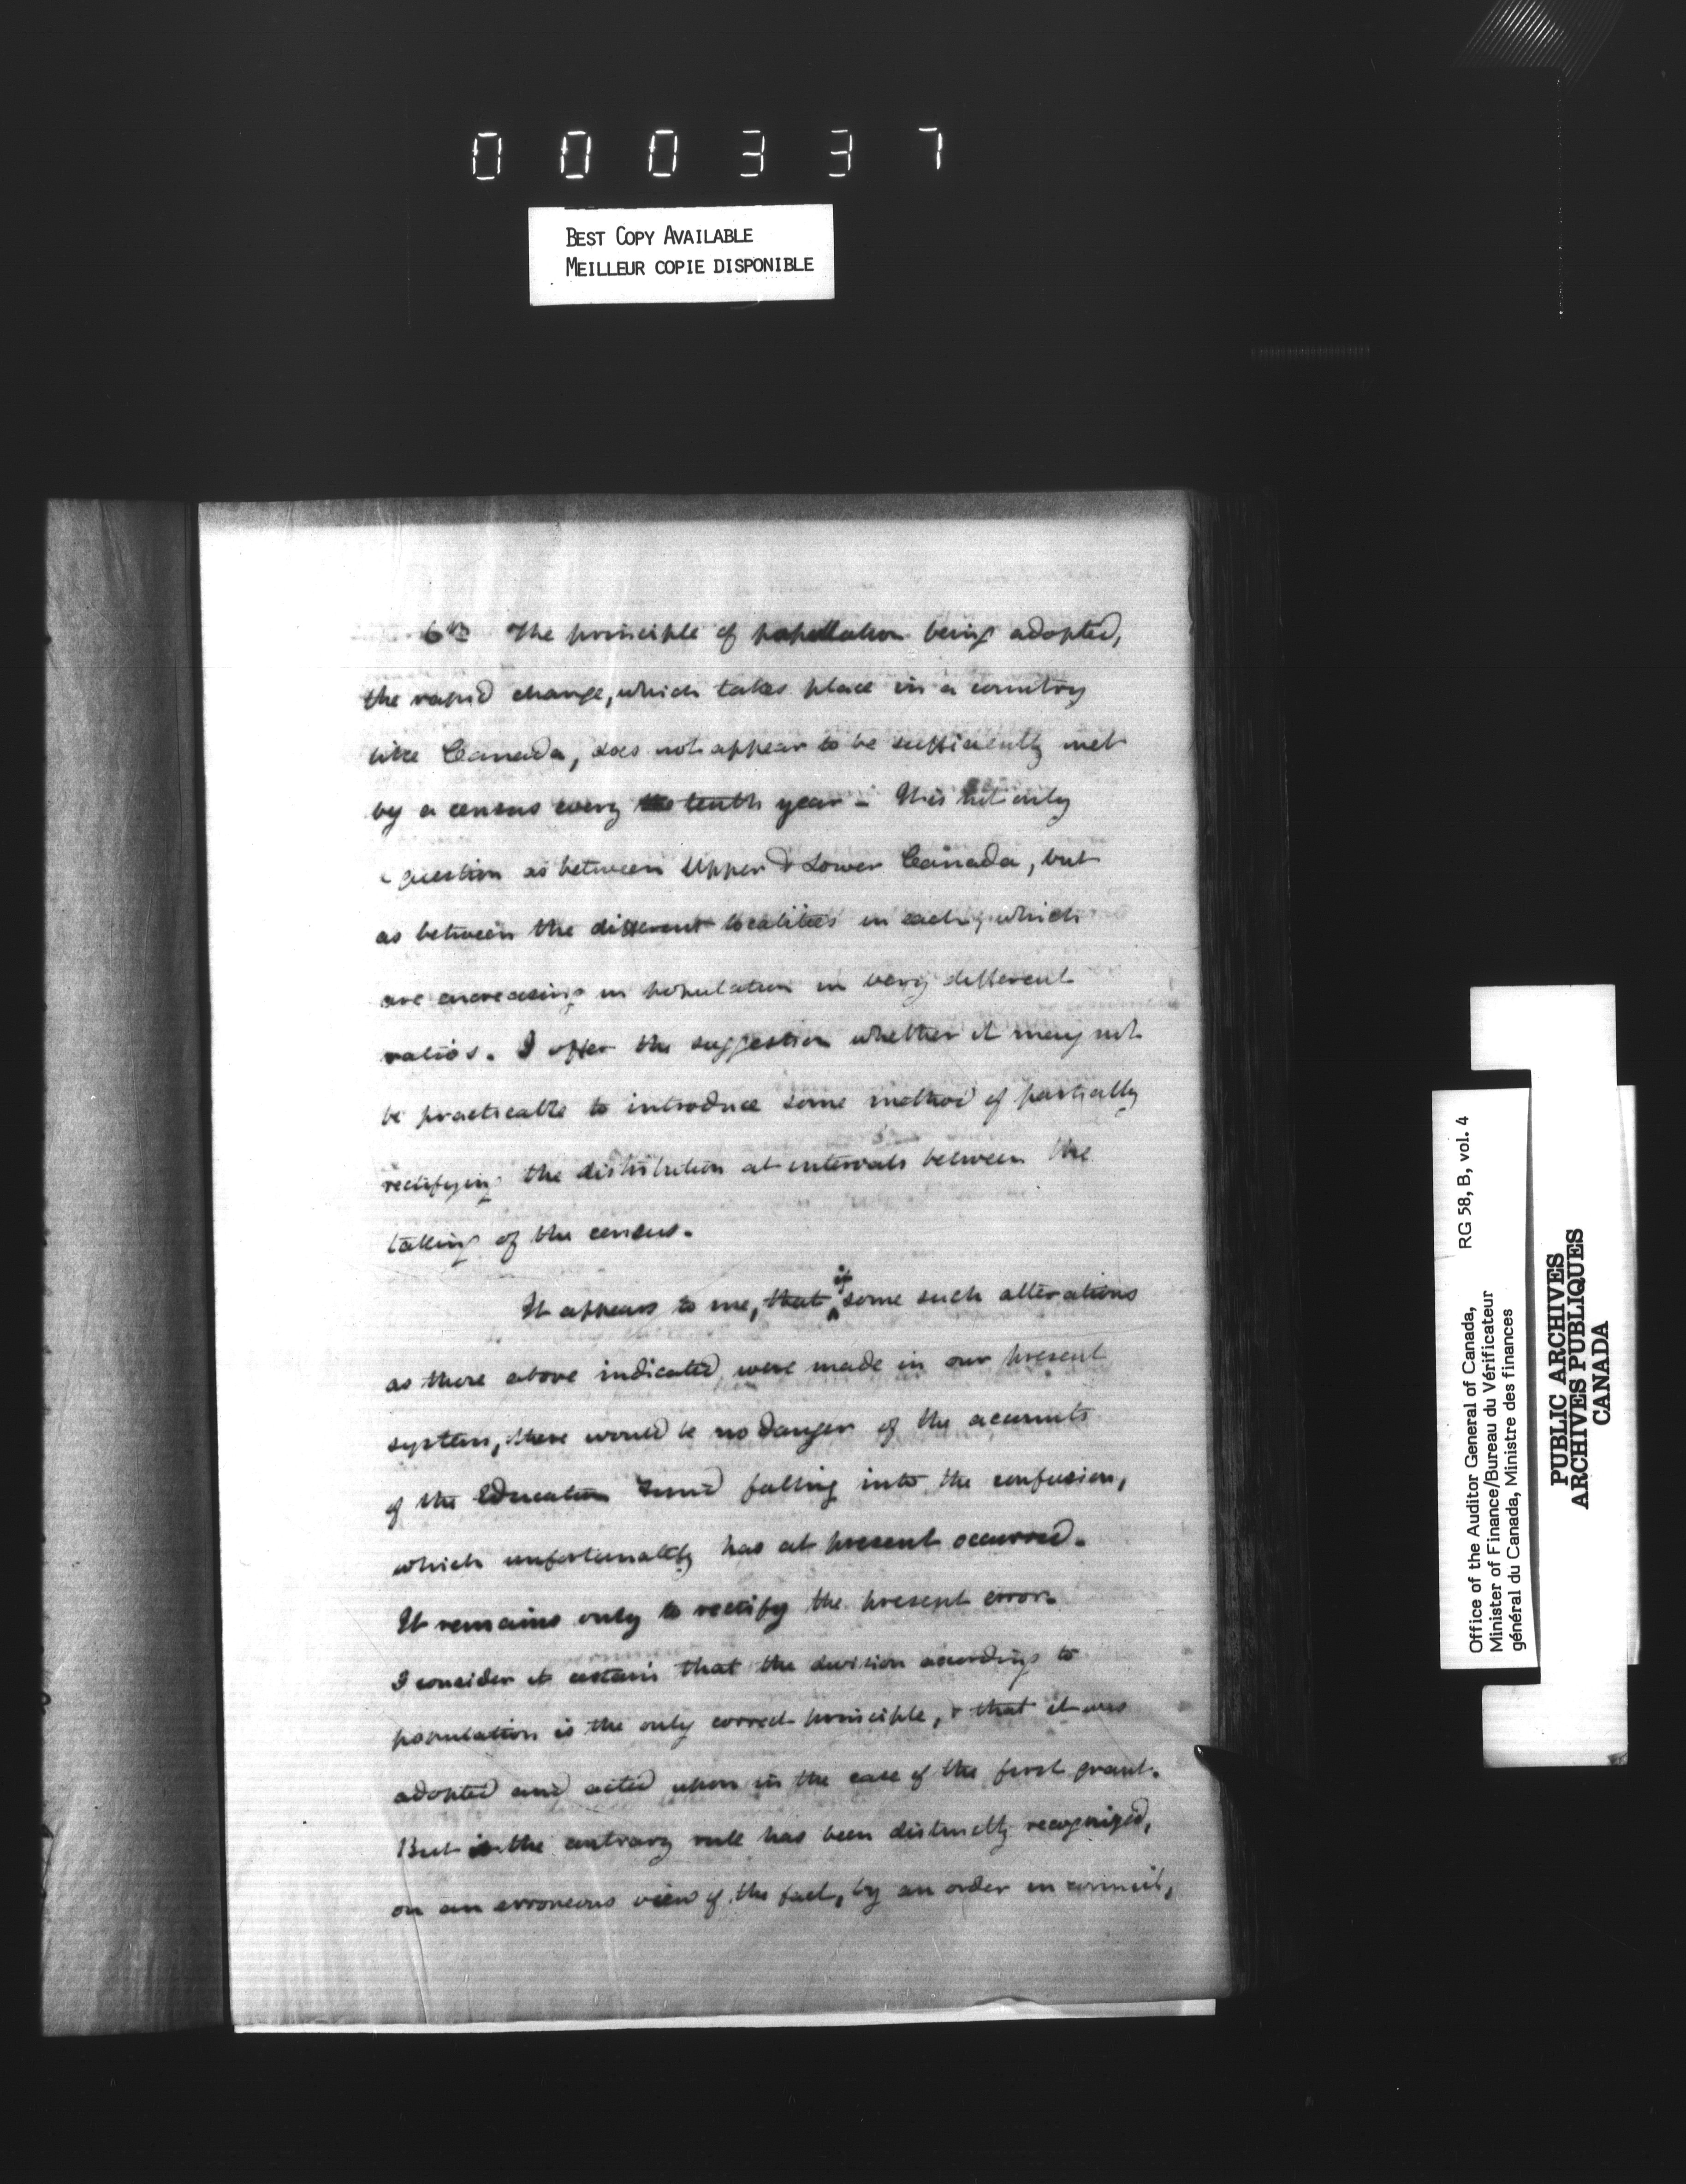 000337
BEST COPY AVAILABLE
MEILLEUR COPIE DISPONIBLE
6th The principle of population being adopted,
the rapid change, which takes place in a country
like Canada, does not appear to be sufficiently met
by a census every the tenth year - This not only
question as between Upper & Lower Canada, but
as between the different localities in each, which
are encreasing in population in very different
ratios. I offer the suggestion whether it may not
be practicable to introduce some method of partially
rectifying the distribution at intervals between the
taking of the census.
It appears to me, that if some such alterations
as those above indicated, were made in our present
system, there would be no danger of the accounts
of the Education Fund falling into the confusion,
which unfortunately has at present occurred.
It remains only to rectify the present error.
I consider it certain that the division according to
population is the only correct principle, & that it was
adopted and acted upon in the case of the first grant.
But the contrary rule has been distinctly recognized,
on an erroneous view of the fact, by an order in council,
Office of the Auditor General of Canada, RG 58, B, vol. 4
Minister of Finance/Bureau du Vérificateur
général du Canada, Ministre des finances
PUBLIC ARCHIVES
ARCHIVES PUBLIQUES
CANADA